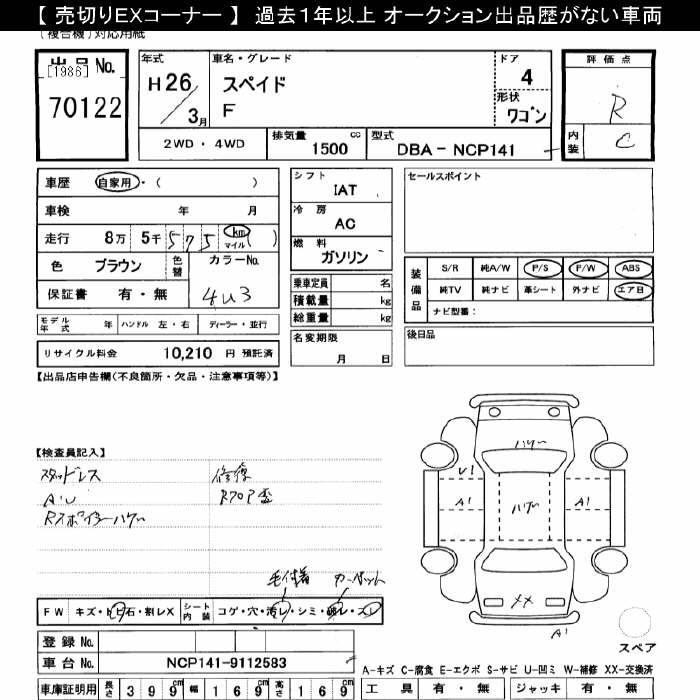 【 売切りEXコーナー 】 過去1年以上 オークション出品歴がない車両
(複合機)対応用紙
出品 No.
[1986]
70122
年式
H26/3月
車名・グレード
スペイド
F
ドア
4
形状
ワゴン
評価点
R
内装
C
2WD ・ 4WD
排気量 1500 cc
型式 DBA－NCP141
車歴 自家用・( )
車検 年 月
走行 8万 5千 575 km マイル ( )
色 ブラウン 色替 カラーNo.
4U3
保証書 有・無
シフト
IAT
冷房
AC
燃料
ガソリン
乗車定員 名
積載量 kg
総重量 kg
名変期限
月 日
セールスポイント
装備品
S/R 純A/W P/S P/W ABS
純TV 純ナビ 革シート 外ナビ エアB
ナビ型番：
後日品
モデル年式 年 ハンドル 左・右 ディーラー・並行
リサイクル料金 10,210 円 預託済
【出品店申告欄(不良箇所・欠品・注意事項等)】
【検査員記入】
スタッドレス
AU
Rスポイラーハゲ
修復
RフロアU歪
ハゲ
U1
A1
ハゲ
A1
XX
A1
スペア
毛付着 カーペット
FW キズ・トビ石・割レX シート内装 コゲ・穴・汚レ・シミ・破レ・スレ
登録 No.
車台 No. NCP141-9112583
車庫証明用 長さ 399cm 幅 169cm 高さ 169cm
A-キズ C-腐食 E-エクボ S-サビ U-凹ミ W-補修 XX-交換済
工具 有・無 ジャッキ 有・無